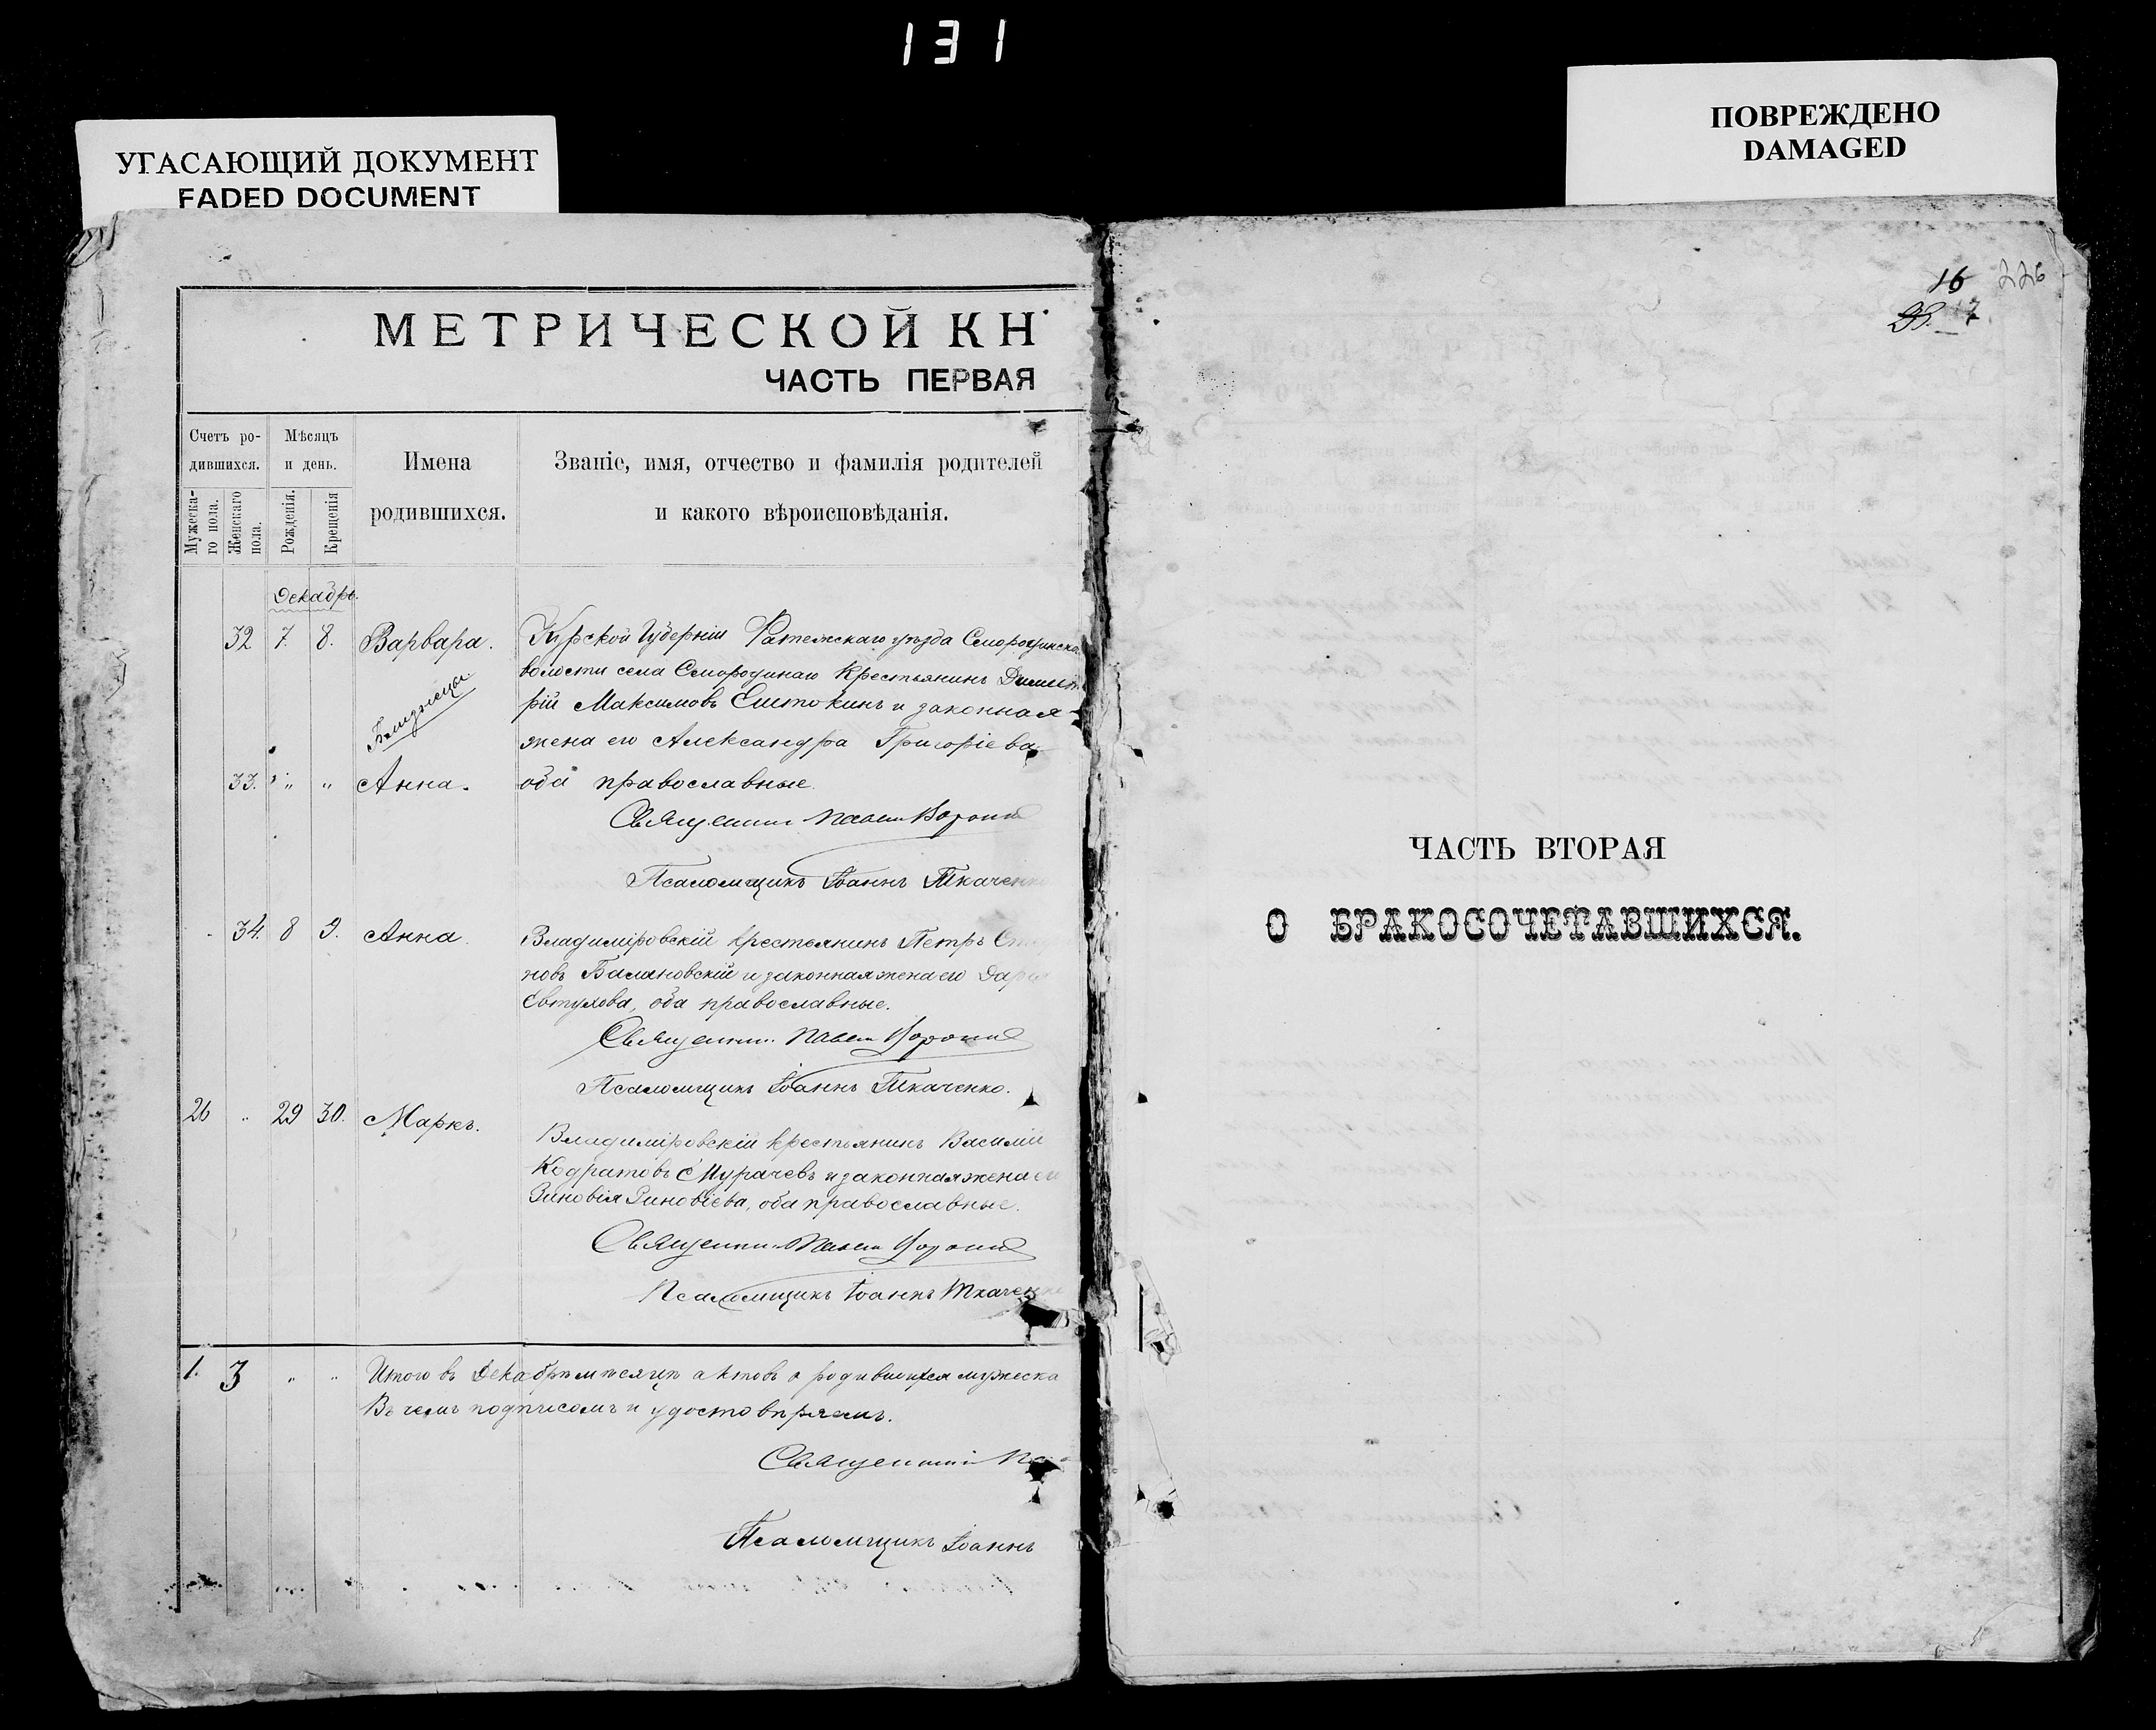 131
УГАСАЮЩИЙ ДОКУМЕНТ
FADED DOCUMENT
ПОВРЕЖДЕНО
DAMAGED
МЕТРИЧЕСКОЙ КН
ЧАСТЬ ПЕРВАЯ
Счетъ ро-
дившихся.
Мужеска-
го пола.
Женскаго
пола.
Мѣсяцъ
и день.
Рожденія.
Крещенія
Имена
родившихся.
Званіе, имя, отчество и фамилія родителей
и какого вѣроисповѣданія.
Декабрь.
32 7. 8. Варвара. Курской Губерніи уѣзда
волости села Крестьянинъ Димит
рій Максимовъ и законная
Близнецы
жена его Александра Григоріева
33. " " Анна. оба православные.
Священникъ Павелъ
Псаломщикъ Іоаннъ Ткаченко
34. 8 9. Анна. Владиміровскій крестьянинъ Петръ
новъ и законная жена его Дарія
Евтухова, оба православные.
Священникъ Павелъ
Псаломщикъ Іоаннъ Ткаченко.
26 " 29 30. Маркъ.
Владиміровскій крестьянинъ Василій
Кодратовъ и законная жена его
Зиновія Зиновіева, оба православные.
Священникъ Павелъ
Псаломщикъ Іоаннъ Ткаченко
1. 3 " " Итого въ Декабрѣ мѣсяцѣ актовъ о родившихся мужеска
Въ чемъ подписомъ и удостовѣряемъ.
Священникъ
Псаломщикъ Іоаннъ
16 226
17
ЧАСТЬ ВТОРАЯ
О БРАКОСОЧЕТАВШИХСЯ.